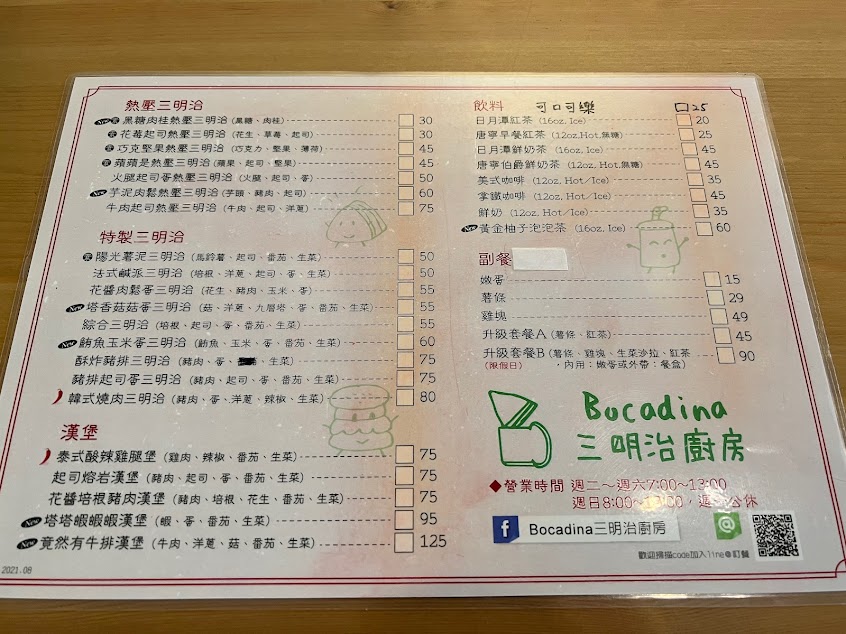 熱壓三明治
New 素 黑糖肉桂熱壓三明治 (黑糖、肉桂) 30
素 花莓起司熱壓三明治 (花生、草莓、起司) 30
素 巧克堅果熱壓三明治 (巧克力、堅果、薄荷) 45
素 蘋蘋是熱壓三明治 (蘋果、起司、堅果) 45
火腿起司蛋熱壓三明治 (火腿、起司、蛋) 50
New 芋泥肉鬆熱壓三明治 (芋頭、豬肉、起司) 60
牛肉起司熱壓三明治 (牛肉、起司、洋蔥) 75
特製三明治
素 陽光薯泥三明治 (馬鈴薯、起司、番茄、生菜) 50
法式鹹派三明治 (培根、洋蔥、起司、蛋、生菜) 50
花醬肉鬆蛋三明治 (花生、豬肉、玉米、蛋) 55
New 塔香菇菇蛋三明治 (菇、洋蔥、九層塔、蛋、番茄、生菜) 55
綜合三明治 (培根、起司、蛋、番茄、生菜) 55
New 鮪魚玉米蛋三明治 (鮪魚、玉米、蛋、番茄、生菜) 60
酥炸豬排三明治 (豬肉、蛋、生菜) 75
豬排起司蛋三明治 (豬肉、起司、蛋、番茄、生菜) 75
韓式燒肉三明治 (豬肉、蛋、洋蔥、辣椒、生菜) 80
漢堡
泰式酸辣雞腿堡 (雞肉、辣椒、番茄、生菜) 75
起司熔岩漢堡 (豬肉、起司、蛋、番茄、生菜) 75
花醬培根豬肉漢堡 (豬肉、培根、花生、番茄、生菜) 75
New 塔塔蝦蝦蝦漢堡 (蝦、蛋、番茄、生菜) 95
New 竟然有牛排漢堡 (牛肉、洋蔥、菇、番茄、生菜) 125
2021.08
飲料 可口可樂 25
日月潭紅茶 (16oz. Ice) 20
唐寧早餐紅茶 (12oz.Hot.無糖) 25
日月潭鮮奶茶 (16oz. Ice) 45
唐寧伯爵鮮奶茶 (12oz.Hot.無糖) 45
美式咖啡 (12oz. Hot/Ice) 35
拿鐵咖啡 (12oz. Hot/Ice) 45
鮮奶 (12oz. Hot/Ice) 35
New 黃金柚子泡泡茶 (16oz. Ice) 60
副餐
嫩蛋 15
薯條 29
雞塊 49
升級套餐A (薯條、紅茶) 45
升級套餐B (薯條、雞塊、生菜沙拉、紅茶 90
(限假日) ，內用：嫩蛋或外帶：餐盒)
Bocadina
三明治廚房
◆營業時間 週二～週六7:00~13:00
週日8:00~
公休
f Bocadina三明治廚房
歡迎掃描code加入line@訂餐